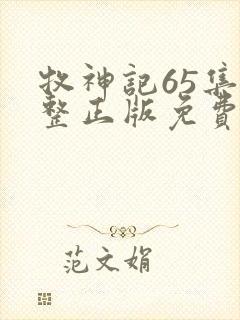 牧神記65集
整正版免費
范文娟